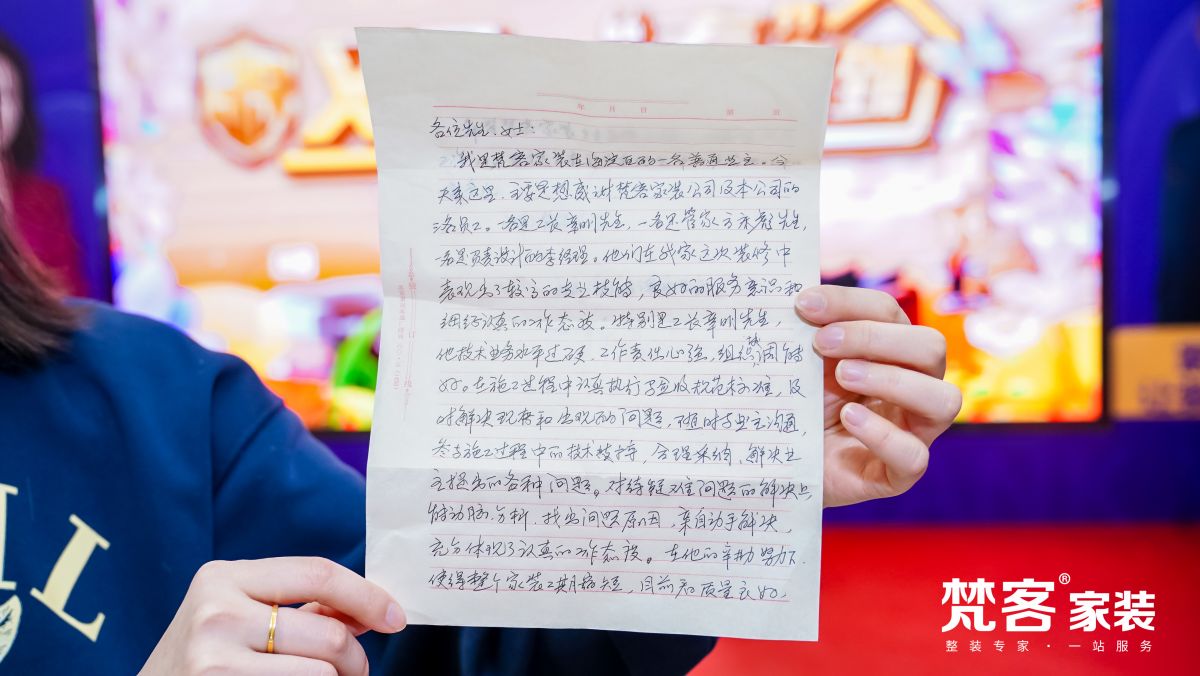 年 月 日 第 页
各位先生、女士:
我是梵客家装在海淀区的一名普通业主。今
天来这里,主要是想感谢梵客家装公司及本公司的
三名员工。一名是工长章明先生,一名是管家方永彪先生,
一名是负责设计的李经理。他们在我家这次装修中
表现出了较高的专业技能,良好的服务意识和
细致认真的工作态度。特别是工长章明先生,
他技术业务水平过硬,工作责任心强,组织协调能力
好。在施工过程中认真执行了验收规范标准,及
时解决现存和出现的问题,随时与业主沟通,
参与施工过程中的技术支持,合理采纳、解决业
主提出的各种问题。对待疑难问题的解决上
能动脑分析,找出问题原因,亲自动手解决,
充分体现了认真的工作态度。在他的辛勤努力下,
使得整个家装工期缩短,目前看质量良好,
梵客® 家装
整装专家·一站服务